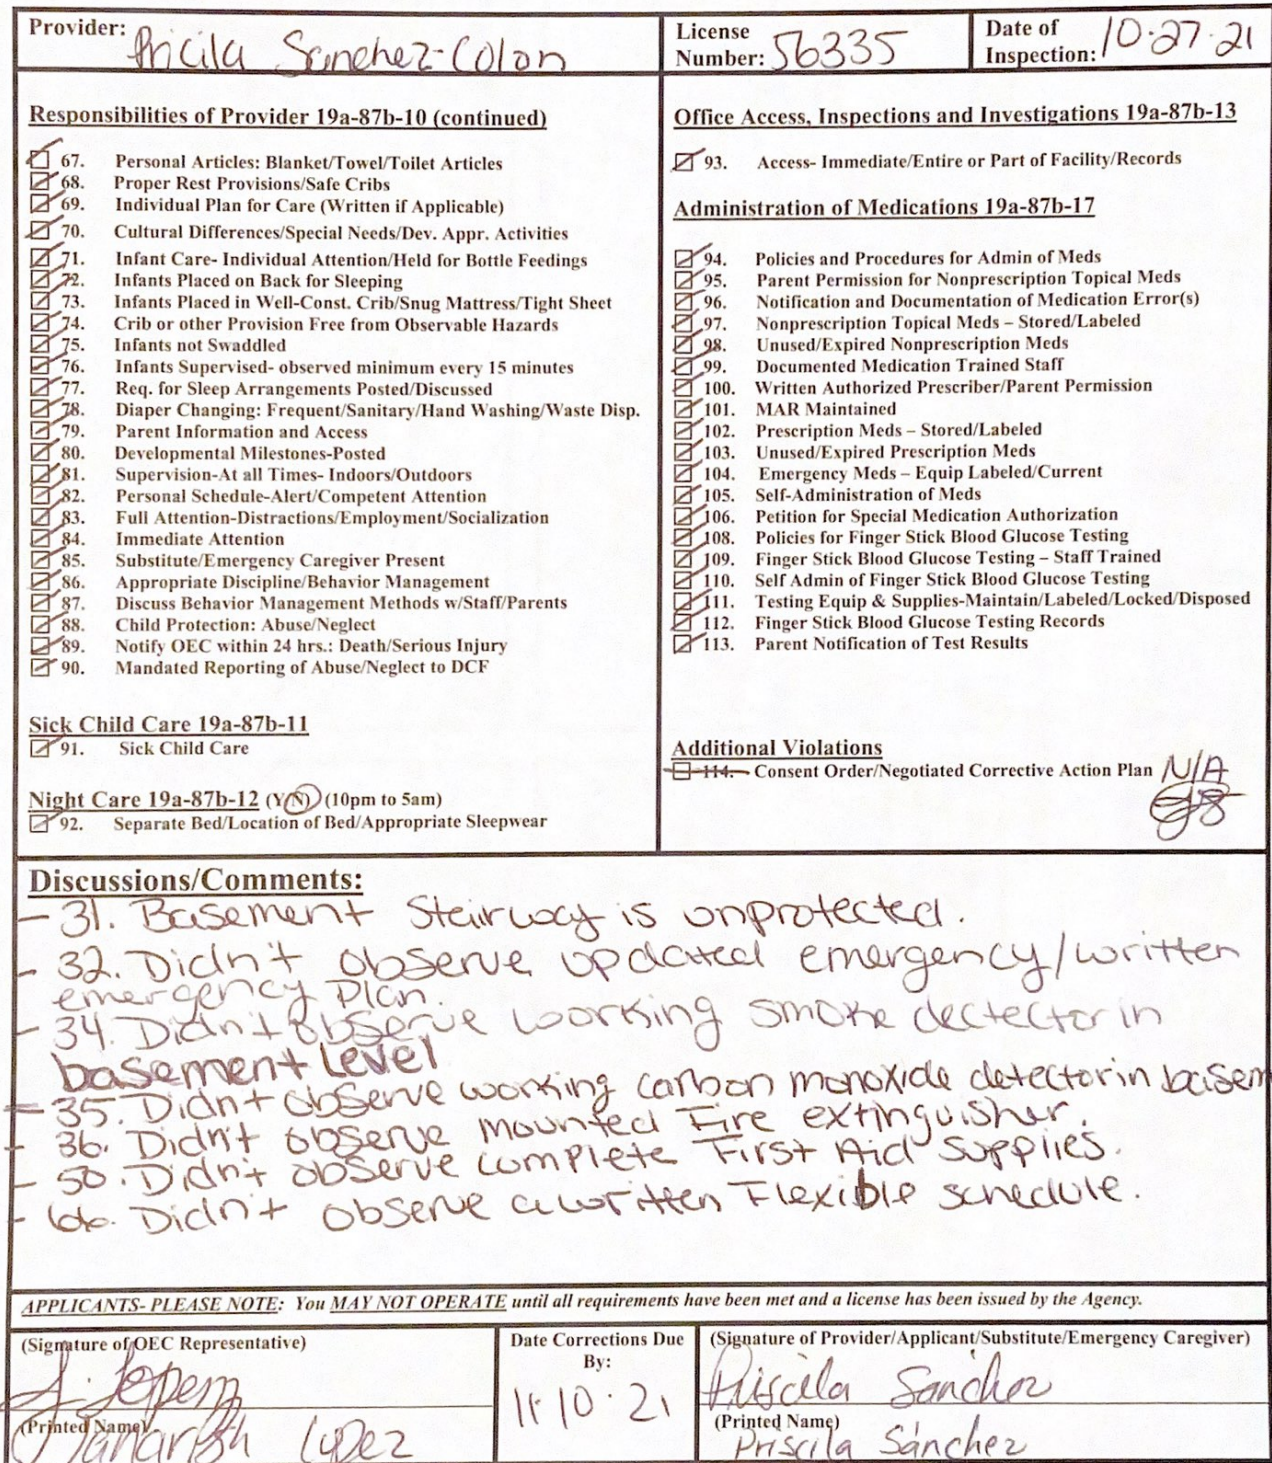 Provider: Pricila Sanchez-Colon
License Number: 56335
Date of Inspection: 10·27·21
Responsibilities of Provider 19a-87b-10 (continued)
67. Personal Articles: Blanket/Towel/Toilet Articles
68. Proper Rest Provisions/Safe Cribs
69. Individual Plan for Care (Written if Applicable)
70. Cultural Differences/Special Needs/Dev. Appr. Activities
71. Infant Care- Individual Attention/Held for Bottle Feedings
72. Infants Placed on Back for Sleeping
73. Infants Placed in Well-Const. Crib/Snug Mattress/Tight Sheet
74. Crib or other Provision Free from Observable Hazards
75. Infants not Swaddled
76. Infants Supervised- observed minimum every 15 minutes
77. Req. for Sleep Arrangements Posted/Discussed
78. Diaper Changing: Frequent/Sanitary/Hand Washing/Waste Disp.
79. Parent Information and Access
80. Developmental Milestones-Posted
81. Supervision-At all Times- Indoors/Outdoors
82. Personal Schedule-Alert/Competent Attention
83. Full Attention-Distractions/Employment/Socialization
84. Immediate Attention
85. Substitute/Emergency Caregiver Present
86. Appropriate Discipline/Behavior Management
87. Discuss Behavior Management Methods w/Staff/Parents
88. Child Protection: Abuse/Neglect
89. Notify OEC within 24 hrs.: Death/Serious Injury
90. Mandated Reporting of Abuse/Neglect to DCF
Sick Child Care 19a-87b-11
91. Sick Child Care
Night Care 19a-87b-12 (Y/N) (10pm to 5am)
92. Separate Bed/Location of Bed/Appropriate Sleepwear
Office Access, Inspections and Investigations 19a-87b-13
93. Access- Immediate/Entire or Part of Facility/Records
Administration of Medications 19a-87b-17
94. Policies and Procedures for Admin of Meds
95. Parent Permission for Nonprescription Topical Meds
96. Notification and Documentation of Medication Error(s)
97. Nonprescription Topical Meds – Stored/Labeled
98. Unused/Expired Nonprescription Meds
99. Documented Medication Trained Staff
100. Written Authorized Prescriber/Parent Permission
101. MAR Maintained
102. Prescription Meds – Stored/Labeled
103. Unused/Expired Prescription Meds
104. Emergency Meds – Equip Labeled/Current
105. Self-Administration of Meds
106. Petition for Special Medication Authorization
108. Policies for Finger Stick Blood Glucose Testing
109. Finger Stick Blood Glucose Testing – Staff Trained
110. Self Admin of Finger Stick Blood Glucose Testing
111. Testing Equip & Supplies-Maintain/Labeled/Locked/Disposed
112. Finger Stick Blood Glucose Testing Records
113. Parent Notification of Test Results
Additional Violations
114. Consent Order/Negotiated Corrective Action Plan N/A
Discussions/Comments:
- 31. Basement Stairway is unprotected.
- 32. Didn't observe updated emergency/written
emergency plan.
- 34. Didn't observe working smoke dectector in
basement Level
- 35. Didn't observe working carbon monoxide detector in basem
- 36. Didn't observe mounted Fire extinguisher.
- 50. Didn't observe complete First Aid supplies.
- 66. Didn't observe a written Flexible schedule.
APPLICANTS- PLEASE NOTE: You MAY NOT OPERATE until all requirements have been met and a license has been issued by the Agency.
(Signature of OEC Representative)
(Printed Name)
Lopez
Date Corrections Due
By:
11·10·21
(Signature of Provider/Applicant/Substitute/Emergency Caregiver)
Priscila Sanchez
(Printed Name)
Priscila Sánchez